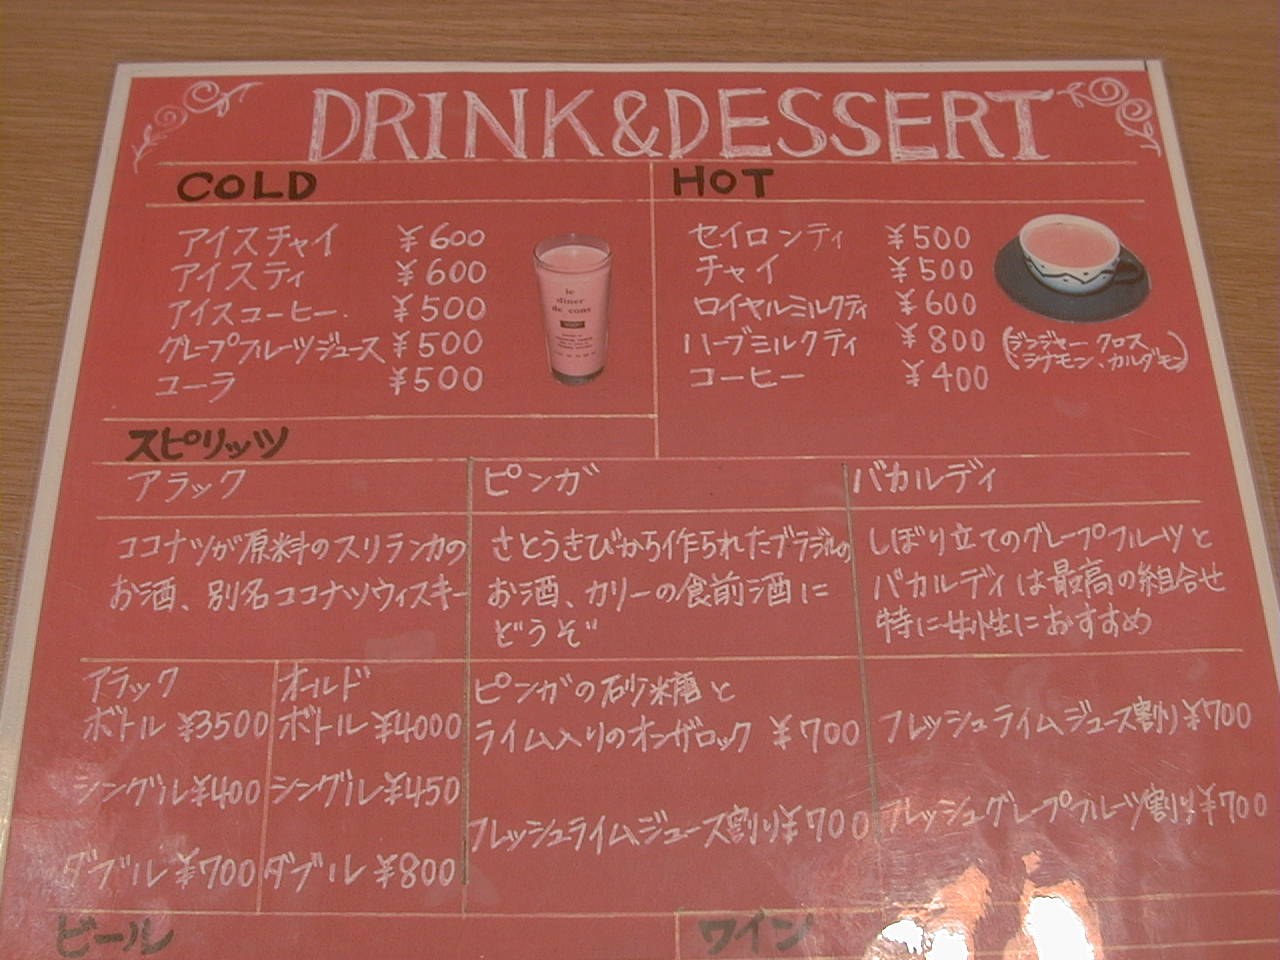 DRINK&DESSERT
COLD
アイスチャイ ¥600
アイスティ ¥600
アイスコーヒー ¥500
グレープフルーツジュース ¥500
コーラ ¥500
le
diner
de cons
HOT
セイロンティ ¥500
チャイ ¥500
ロイヤルミルクティ ¥600
ハーブミルクティ ¥800 (ジンジャー クロス
シナモン、カルダモン)
コーヒー ¥400
スピリッツ
アラック
ココナツが原料のスリランカの
お酒、別名ココナツウィスキー
アラック
ボトル ¥3500
シングル ¥400
ダブル ¥700
オールド
ボトル ¥4000
シングル ¥450
ダブル ¥800
ピンガ
さとうきびから作られたブラジルの
お酒、カリーの食前酒に
どうぞ
ピンガの砂糖と
ライム入りのオンザロック ¥700
フレッシュライムジュース割り ¥700
バカルディ
しぼり立てのグレープフルーツと
バカルディは最高の組合せ
特に女性におすすめ
フレッシュライムジュース割り ¥700
フレッシュグレープフルーツ割り ¥700
ビール
ワイン